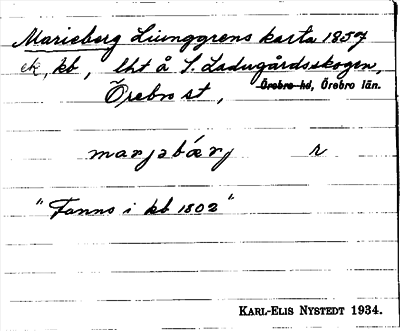 Marieberg Ljunggrens karta 1857
ek, kb, lht å S. Ladugårdsskogen,
Örebro st, Örebro hd, Örebro län.
marjabærj r
"Fanns i kb 1802"
KARL-ELIS NYSTEDT 1934.